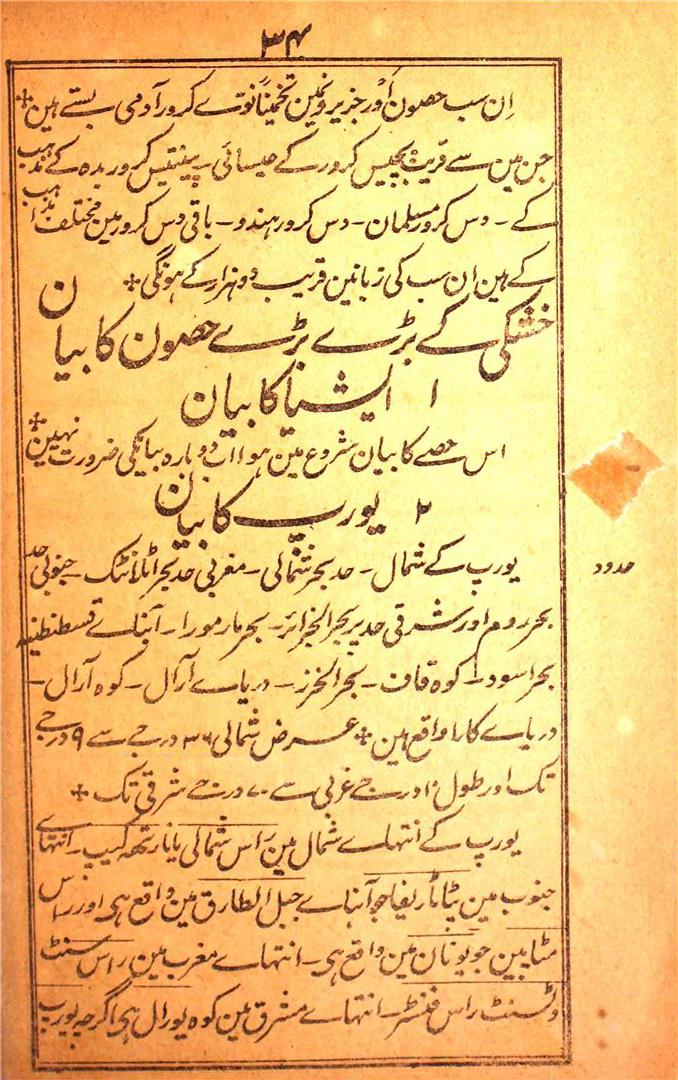 ۳۴
اِن سب حصون اَور جزیرونمین تخمیناً نوّے کرور آدمی بستے ہین ٭
جن مین سے قریب پچیس کرور کے عیسائی ۔ پینتیس کرور بدہ کے مذہب
کے ۔ دس کرور مسلمان ۔ دس کرور ہندو ۔ باقی دس کرور مین مختلف مذاہب
کے ہین ان سب کی زبانین قریب دو ہزار کے ہونگی ٭
خشکی کے بڑے بڑے حصون کا بیان
۱ ایشیا کا بیان
اس حصے کا بیان شروع مین ہوا اب دوبارہ بیانکی ضرورت نہین ٭
۲ یورپ کا بیان
یورپ کے شمال ۔ حد بحر شمالی ۔ مغربی حد بحر اٹلانٹک ۔ جنوبی حد
حدود
بحر روم اور شرقی حد پر بحر الجزائر ۔ بحر مارمورا ۔ آبناے قسطنطنیہ
بحر اسود ۔ کوہ قاف ۔ بحر الخزر ۔ دریاے آرال ۔ کوہ آرال ۔
دریاے کارا واقع ہین ٭ عرض شمالی ۳۶ درجے سے ۹ درجے
تک اور طول ۱۰ درجے غربی سے ۷۰ درجے شرقی تک ٭
یورپ کے انتہاے شمال مین راس شمالی یا نارتھ کیپ ۔ انتہاے
جنوب مین ٹاٹاریفا جو آبناے جبل الطارق مین واقع ہی اور راس
مٹاپین جو یونان مین واقع ہی ۔ انتہاے مغرب مین راس سنٹ
ونسنٹ راس فنسٹر ۔ انتہاے مشرق مین کوہ یورال ہی اگرچہ یورپ